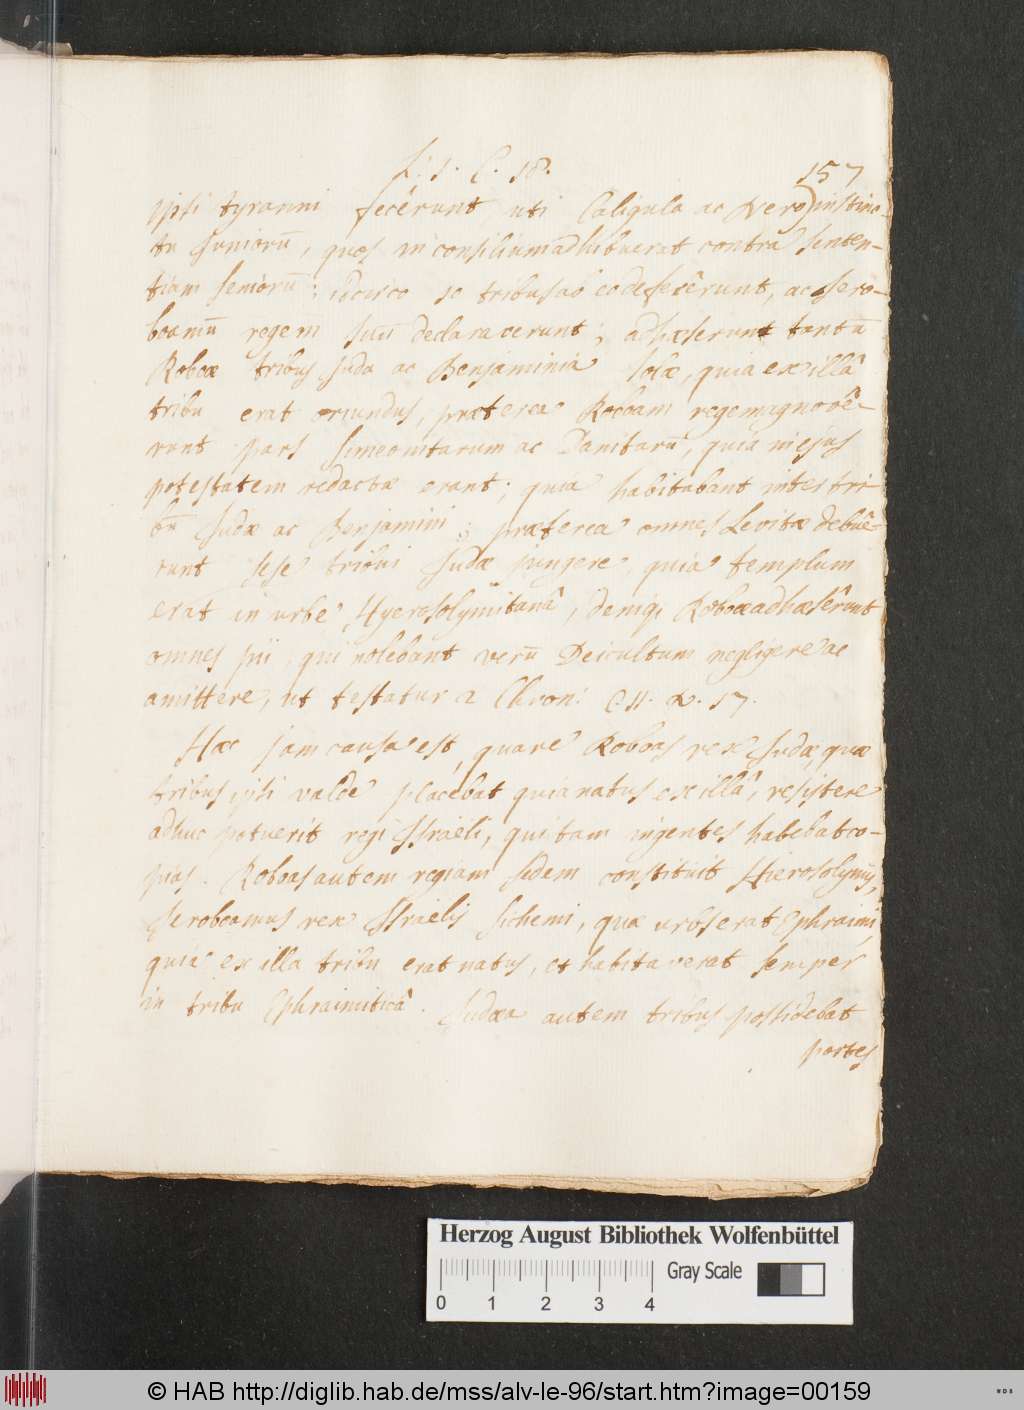 L: 1. C. 18. 157
ipsi tyranni fecêrunt, uti Caligula ac Nero) instinc-
tu Juniorū, quos in consilium adhibuerat contra senten-
tiam seniorū; idcirco 10 tribus ab eo defecêrunt, ac Jero-
boamū regem suū declaraverunt; adhæserunt tantū
Roboæ tribus Juda ac Benjaminia solæ, quia ex illâ
tribu erat oriundus, præterea Roboam regem agnovê-
runt pars Simeonitarum ac Danitarū, quia in ejus
potestatem redactæ erant; quia habitabant inter tri-
bū Judæ ac Benjamini; præterea omnes Levitæ debuê-
runt sese tribui Judæ jungere, quia templum
erat in urbe Hyerosolymitanâ, deniq; Roboæ adhæsêrunt
omnes pii, qui nolebant verū Dei cultum negligere ac
amittere, ut testatur 2 Chron: C. 11. V. 17.
Hæc jam causa est, quare Roboas rex Judæ, quæ
tribus ipsi valde placebat quia natus ex illâ, resistere
adhuc potuerit regi Israeli, qui tam ingentes habebat co-
pias. Roboas autem regiam sedem constituit Hierosolymis,
Jeroboamus rex Israelis Sichemi, quæ urbs erat Ephraimi,
quia ex illa tribu erat natus, et habitaverat semper
in tribu Ephraimiticâ. Judæa autem tribus possidebat
partes
Herzog August Bibliothek Wolfenbüttel
Gray Scale
0 1 2 3 4
© HAB http://diglib.hab.de/mss/alv-le-96/start.htm?image=00159